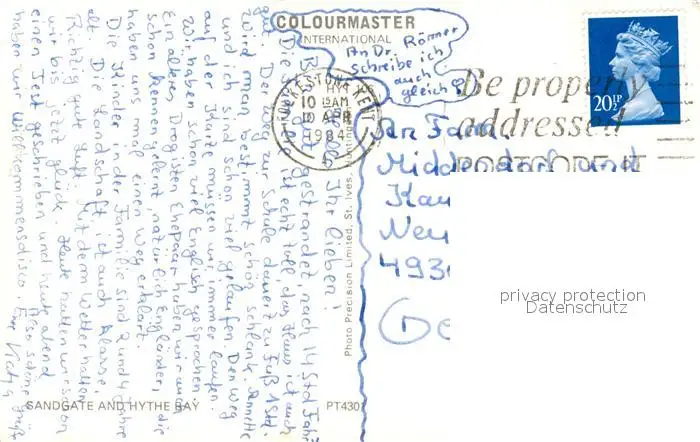 COLOURMASTER
INTERNATIONAL
An Dr. Römer
schreibe ich
auch
gleich
FOLKESTONE KENT
10 15 AM
10 APR
1984
Be properly
addressed
POSTCODE IT
20½P
An Fam.
Middendorf und
Kau
Neu
493
Ge
privacy protection
Datenschutz
Photo Precision Limited, St. Ives, Huntingdon
SANDGATE AND HYTHE BAY
PT4301
Hallo Ihr Lieben!
Bin gut gestrandet, nach 14 Std Fahrt
Die Familie ist echt toll, das Haus ist auch
gut. Der Weg zur Schule dauert zu Fuß 1 Std.
Wird man bestimmt schön schlank. Annette
und ich sind schon viel gelaufen. Den Weg
auf der Karte müssen wir immer laufen.
Wir haben schon viel Englisch gesprochen.
Ein älteres Drogisten Ehepaar haben wir auch
schon kennengelernt, natürlich Engländer, die
haben uns mal einen Weg erklärt.
Die Kinder in der Familie sind 2 und 4 Jahre
alt. Die Landschaft ist auch Klasse.
Richtig gute Luft. Mit dem Wetter hatten
wir bis jetzt Glück. Heute hatten wir schon
einen Test geschrieben und heute abend
haben wir Willkommensdisco. Also schöne Grüße
Eure Kathy